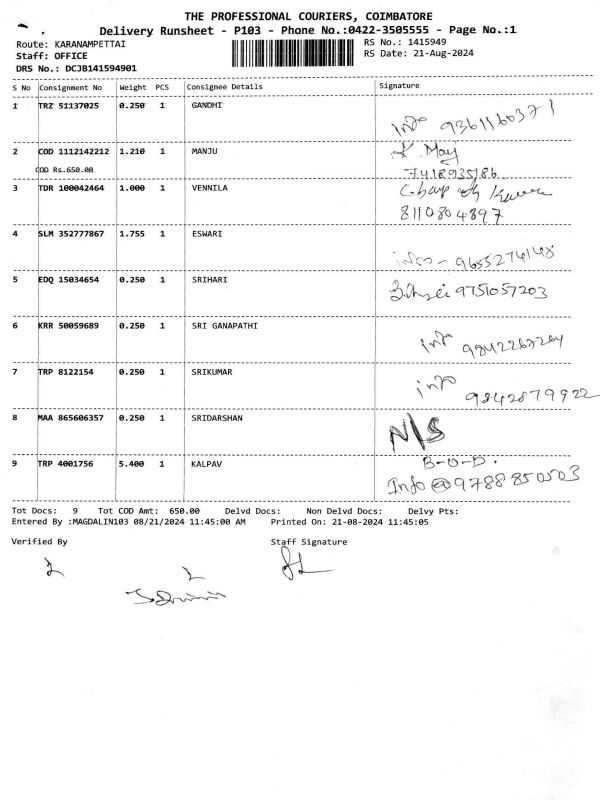 THE PROFESSIONAL COURIERS, COIMBATORE
Delivery Runsheet - P103 - Phone No.:0422-3505555 - Page No.:1
Route: KARANAMPETTAI RS No.: 1415949
Staff: OFFICE RS Date: 21-Aug-2024
DRS No.: DCJB141594901
S No Consignment No Weight PCS Consignee Details Signature
1 TRZ 51137025 0.250 1 GANDHI
info 9361160371
2 COD 1112142212 1.210 1 MANJU
COD Rs.650.00 7418935186
3 TDR 100042464 1.000 1 VENNILA
8110804897
4 SLM 352777867 1.755 1 ESWARI
info - 9655274148
5 EDQ 15034654 0.250 1 SRIHARI
9751057203
6 KRR 50059689 0.250 1 SRI GANAPATHI
info
7 TRP 8122154 0.250 1 SRIKUMAR
info 9842879922
8 MAA 865606357 0.250 1 SRIDARSHAN N/S
9 TRP 4001756 5.400 1 KALPAV B-O-D.
Info @ 9788850503
Tot Docs: 9 Tot COD Amt: 650.00 Delvd Docs: Non Delvd Docs: Delvy Pts:
Entered By :MAGDALIN103 08/21/2024 11:45:00 AM Printed On: 21-08-2024 11:45:05
Verified By Staff Signature